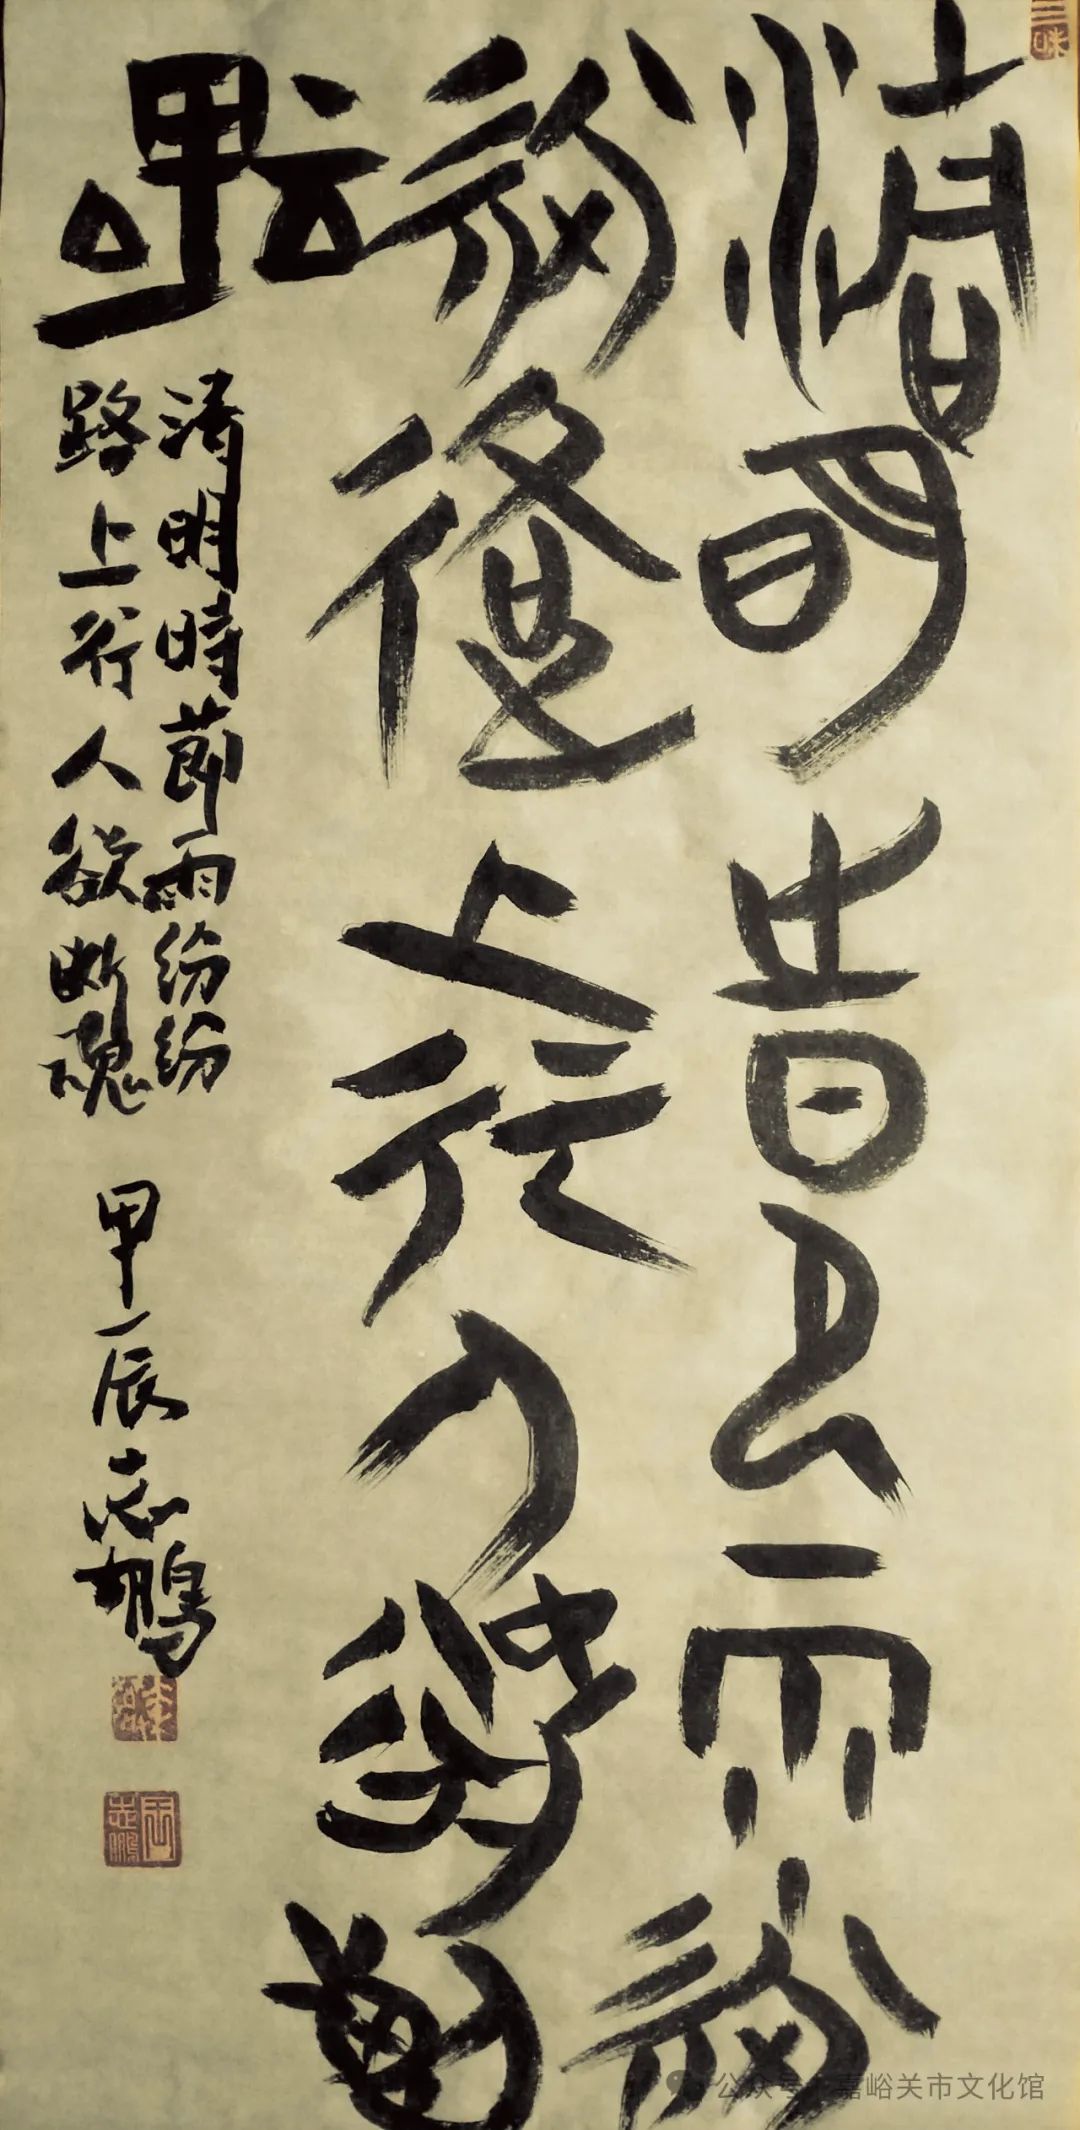 清明時節雨紛
紛路上行人欲斷
魂
清明時節雨紛紛
路上行人欲断魂
甲辰志鵬
公众号·嘉峪关市文化馆